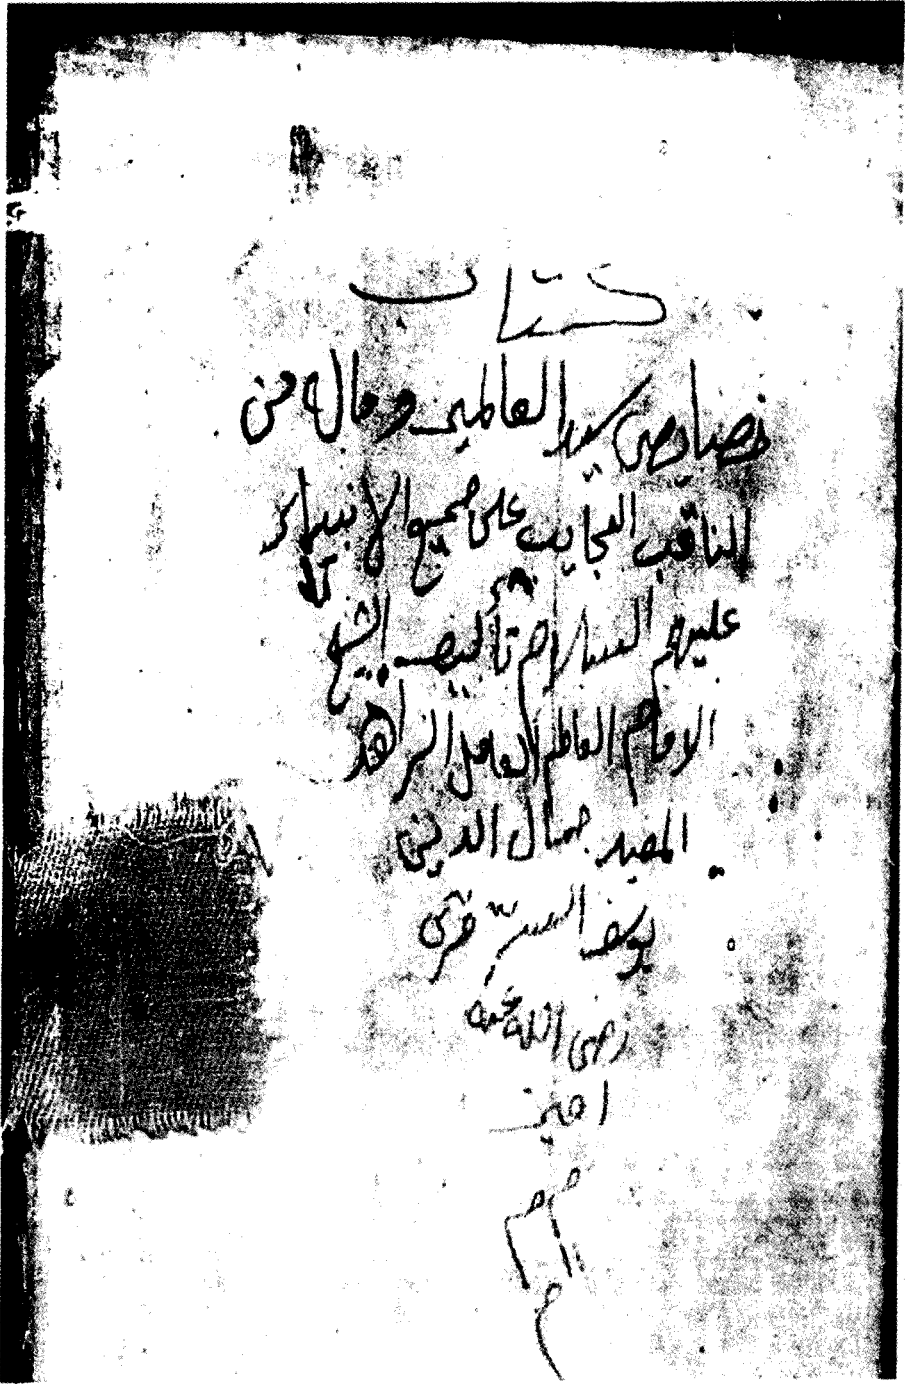 كتاب
خصايص سيد العالمين وماله من
المناقب العجايب على جميع الانبياء
عليهم السلام تأليف الشيخ
الامام العالم العامل الزاهد
المفيد جمال الدين
يوسف السرمري
رضي الله عنه
امين
م م
م